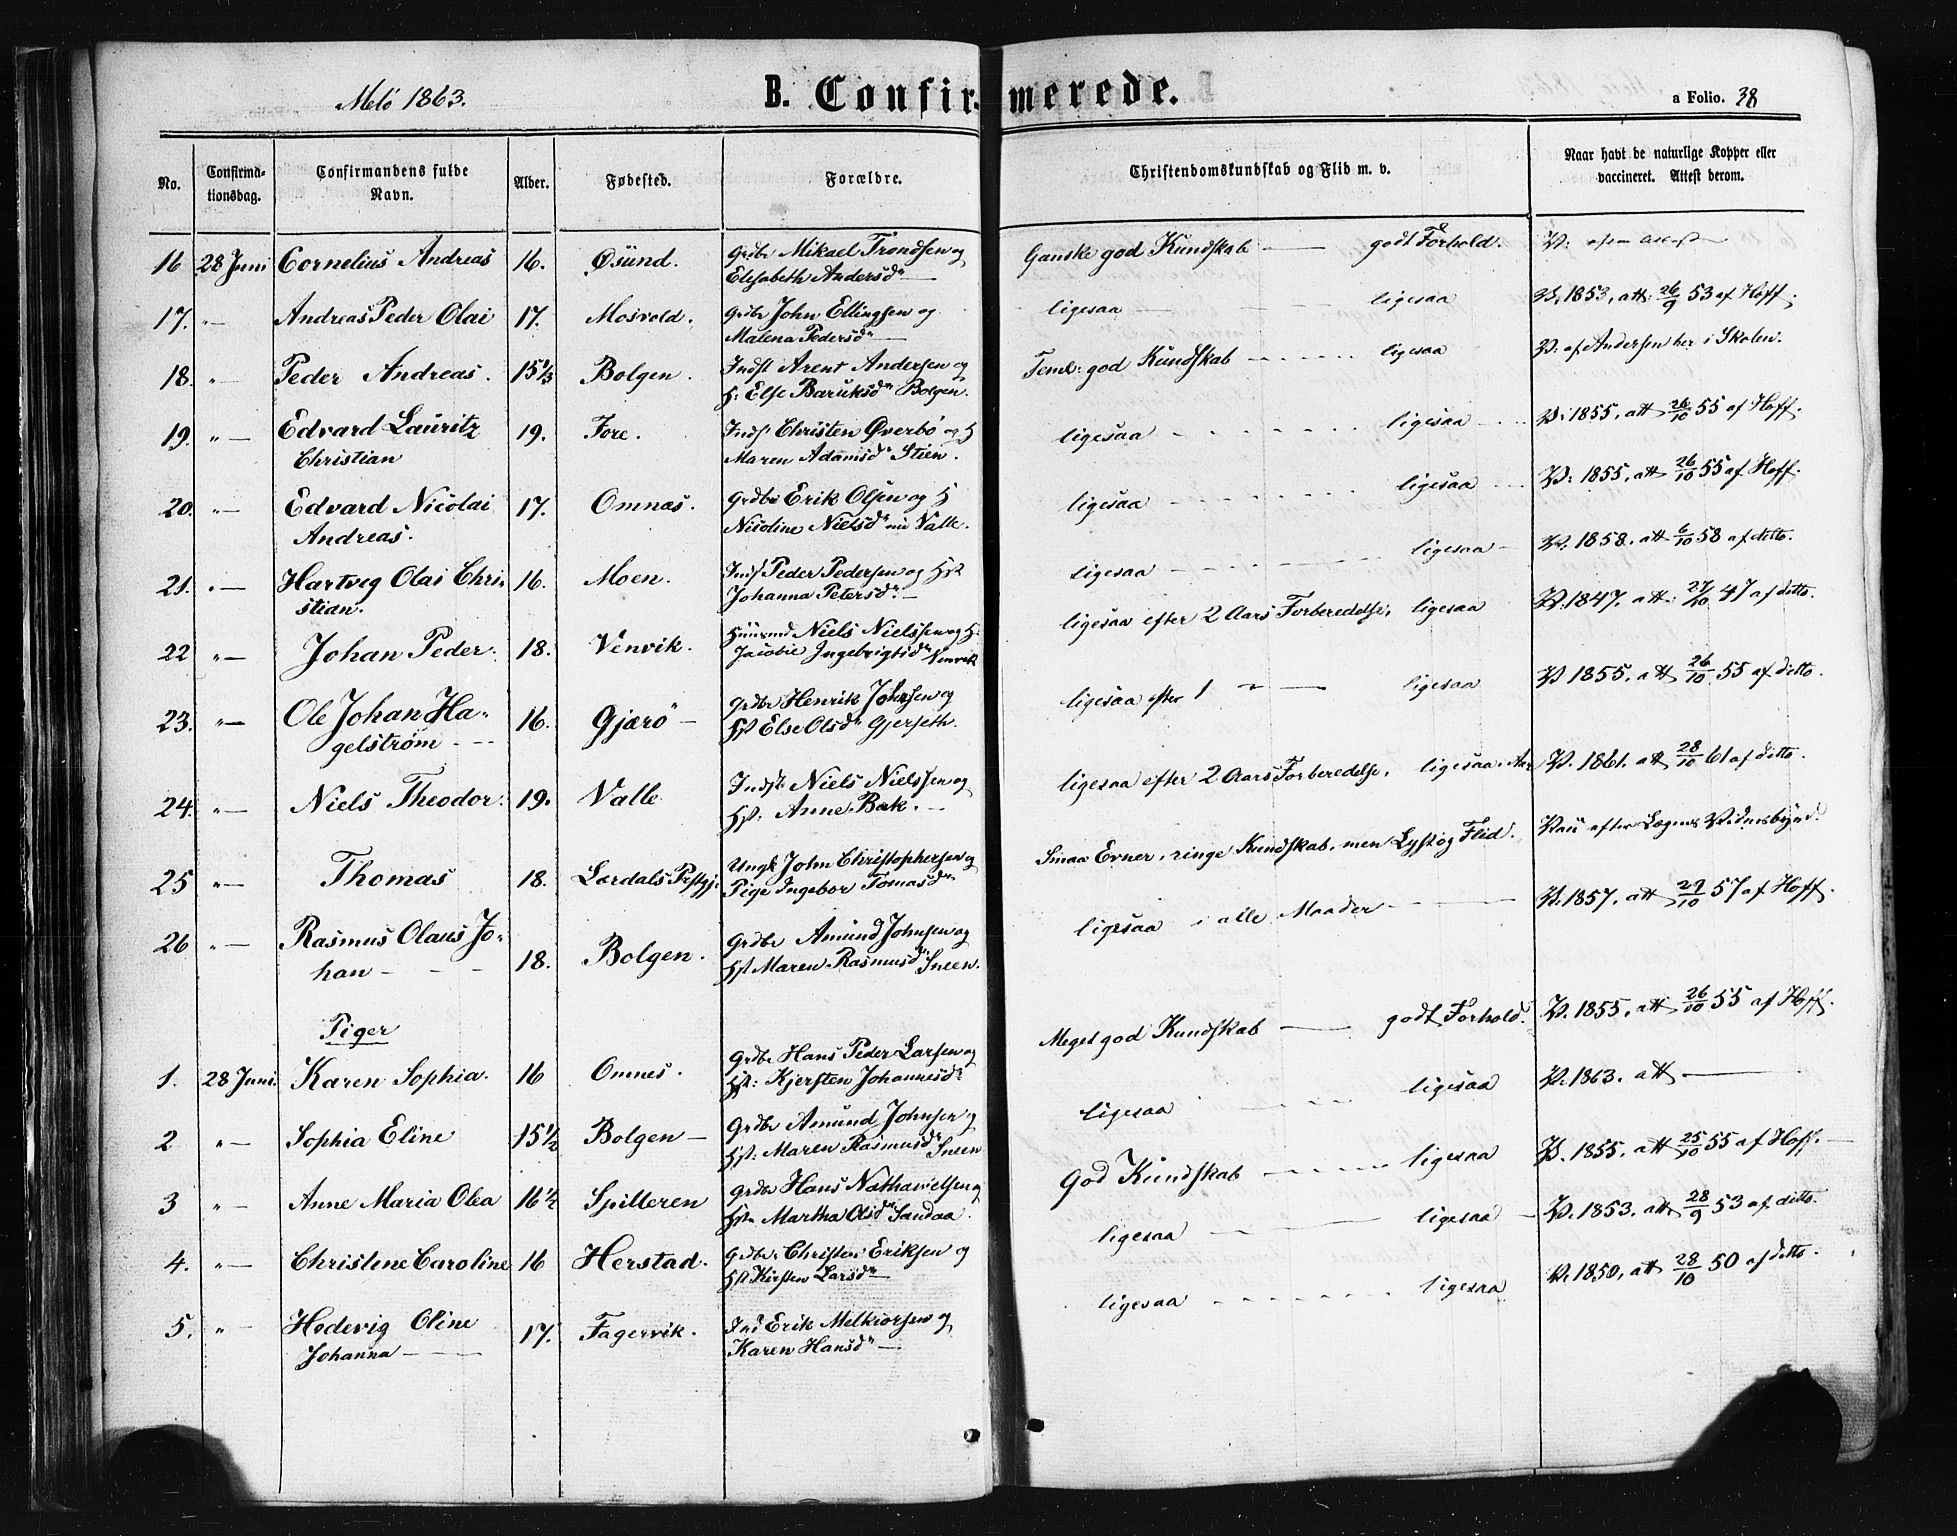 Melö 1863.
B. Confirmerede.
a Folio. 38
No.
Confirmationsdag.
Confirmandens fulde Navn.
Alder.
Fødested.
Forældre.
Christendomskundskab og Flid m. v.
Naar havt de naturlige Kopper eller vaccineret. Attest derom.
16 28 Juni Cornelius Andreas 16. Øsund. Grdbr Mikael Trondsen og Ganske god Kundskab — godt Forhold. V:
Elisabeth Andersdr
17. "— Andreas Peder Olai 17. Mosvold. Grdbr John Ellingsen og ligesaa — ligesaa V. 1853, att: 26/9 53 af Hoff.
Malena Pedersdr
18. "— Peder Andreas. 15 1/3 Bolgen. Indst Arent Andersen og Teml: god Kundskab — ligesaa V: af Andersen her i Skolen.
H: Else Baruksdr Bolgen.
19. "— Edvard Lauritz 19. Fore. Inds: Christen Øverbö og H ligesaa — ligesaa V: 1855, att 26/10 55 af Hoff.
Christian Maren Adamsdr Stien.
20. "— Edvard Nicolai 17. Omnæs. Grdbr Erik Olsen og H ligesaa — ligesaa V: 1855, att 26/10 55 af Hoff.
Andreas. Nicoline Nielsdr Valle.
21. "— Hartvig Olai Chri- 16. Moen. Inds Peder Pedersen og Hst ligesaa — ligesaa V. 1858, att 6/10 58 af ditto.
stian. Johanna Petersdr
22 "— Johan Peder. 18. Venvik. Huusmd Niels Nielssen og H: ligesaa efter 2 Aars Forberedelse, ligesaa V. 1847. att. 27/10 47 af ditto.
Jacobie Ingebrigtsdr Venvik
23. "— Ole Johan Ha- 16. Gjærö — Grdbr Henrik Johnsen og ligesaa efter 1 — ligesaa V 1855. att 26/10 55 af ditto.
gelström Hst Else Olsdr Gjerseth.
24. "— Niels Theodor. 19. Valle Indst: Niels Nielssen og ligesaa efter 2 Aars Forberedelse, ligesaa V. 1861. att 28/10 61 af ditto.
Hst: Anne Bak.
25 "— Thomas 18. Lærdals Prstgj: Ungk John Christophersen og Smaa Evner, ringe Kundskab, men Lyst og Flid. efter Lægens Vidnesbyrd.
Pige Ingebor Tomasdr
26 "— Rasmus Olaus Jo- 18. Bolgen. Grdbr Amund Johnsen og ligesaa i alle Maader V. 1857, att 27/10 57 af Hoff.
han — Hst Maren Rasmusdr Sneen.
Piger
1. 28 Juni. Karen Sophia. 16 Omnes. Grdbr Hans Peder Larsen og Meget god Kundskab — godt Forhold. V. 1855, att 26/10 55 af Hoff.
Hst: Kjersten Johannesdr
2 "— Sophia Eline 15 1/2 Bolgen — Grdbr Amund Johnsen og ligesaa — ligesaa V. 1863. att —
Hst: Maren Rasmusdr Sneen
3 "— Anne Maria Olea 16 1/2 Spilleren Grdbr Hans Nathanielsen og God Kundskab — ligesaa V. 1855, att 25/10 55 af Hoff.
Hst Martha Olsdr Sandaa.
4. "— Christine Caroline 16 Herstad. Grdbr Christen Eriksen og ligesaa — ligesaa V. 1853. att 28/9 53 af ditto.
Hst Kirsten Larsdr
5. "— Hedevig Oline 17. Fagervik. Ind Erik Melkiorsen og ligesaa — ligesaa V. 1850, att 28/10 50 af ditto.
Johanna — Karen Hansdr